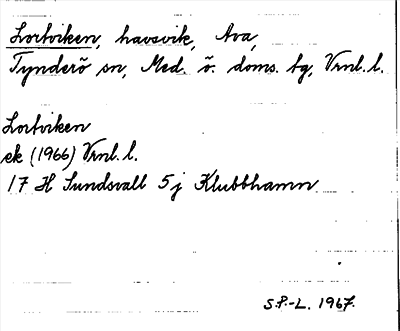 Lortviken, havsvik, Ava,
Tynderö sn, Med. ö. doms. tg, Vrnl. l.
Lortviken
ek (1966) Vrnl. l.
17 H Sundsvall 5 j Klubbhamn
S.P.-L. 1967.